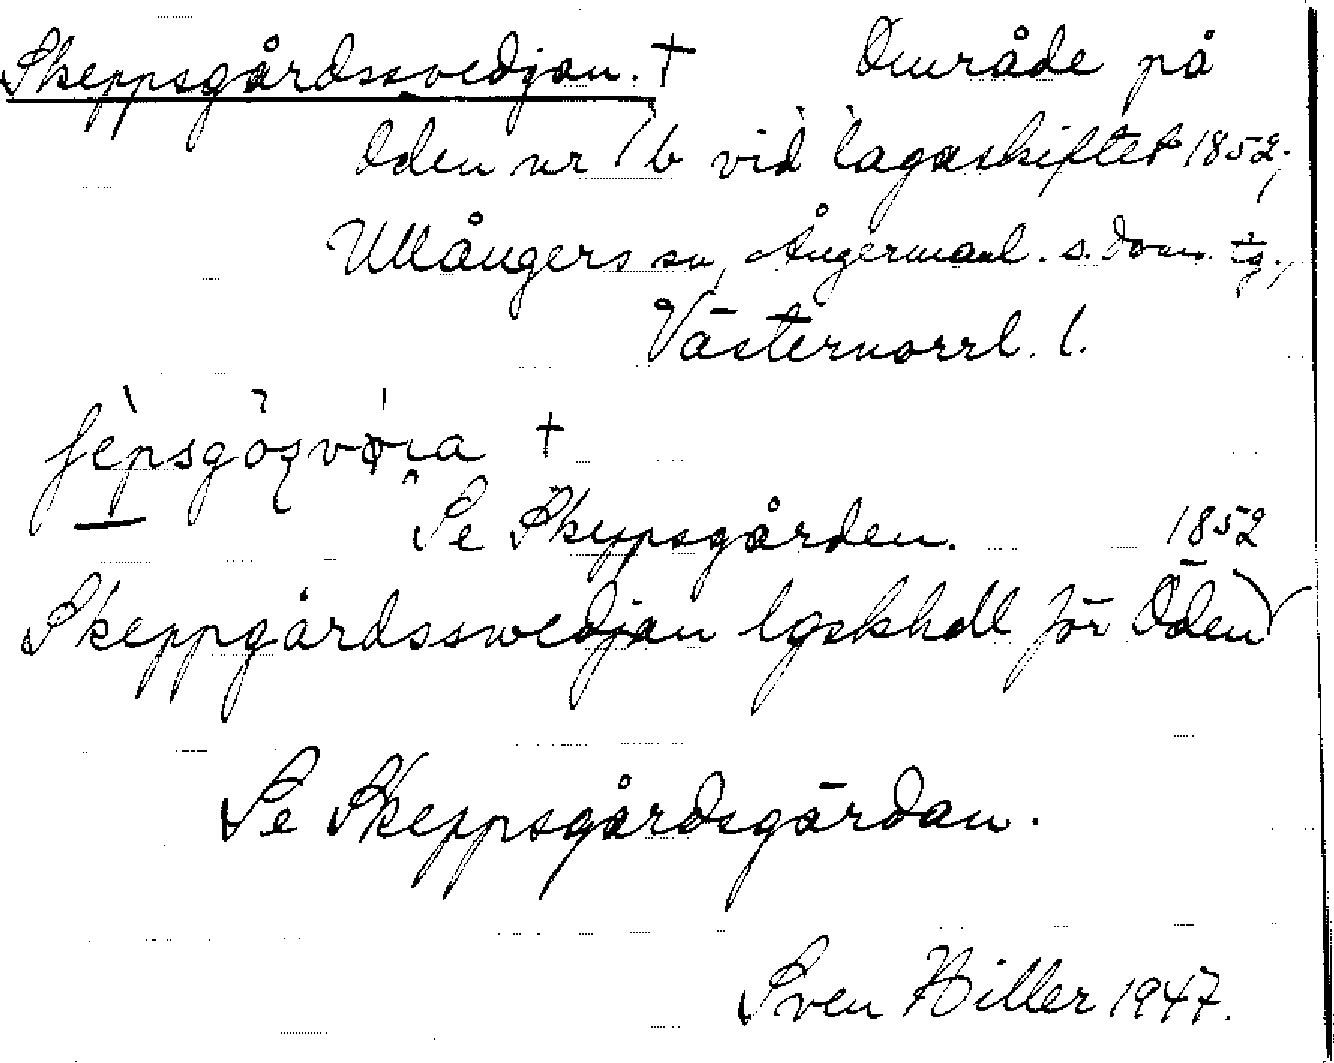 Skeppsgårdssvedjan. † Område på
Öden nr 1b vid lagaskiftet 1852,
Ullångers sn, Ångermanl. s. doms.
Västernorrl. l.
†
Se Skeppsgården. 1852
Skeppgårdsswedjan lgskhdl för Öden
Se Skeppsgårdsgärdan.
Sven Hiller 1947.